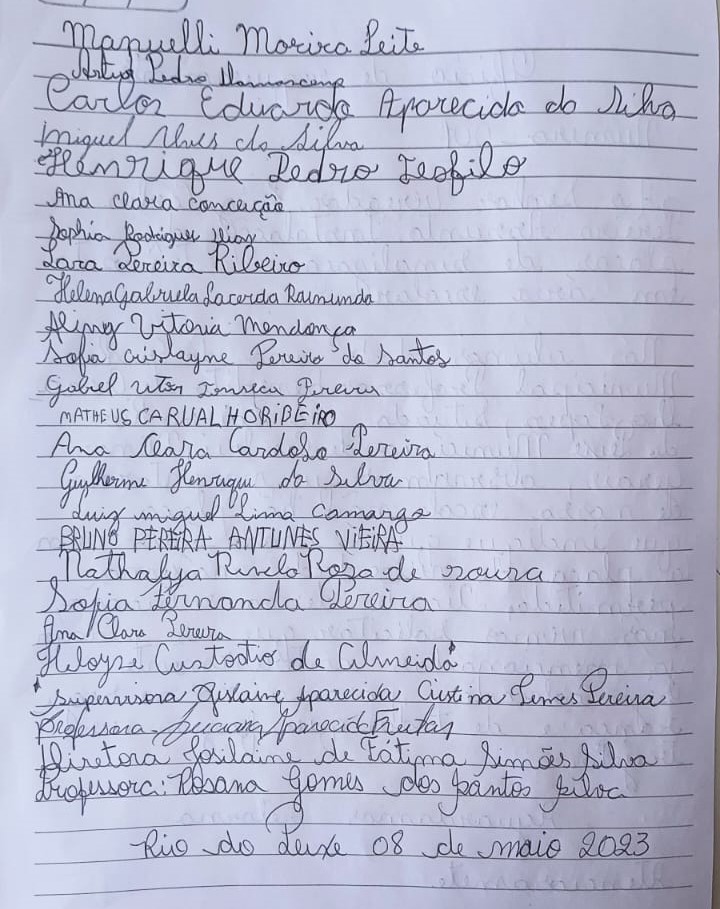 Manuelli Moreira Leite
Artur Pedro
Carlos Eduardo Aparecido da Silva
Miguel Alves da Silva
Henrique Pedro Teofilo
Ana clara conceição
Sophia Rodrigues Dias
Lara Pereira Ribeiro
Helena Gabriela Lacerda Raimunda
Vitoria Mendonça
Sofia crislayne Pereira do Santos
Gabriel Fonseca Pereira
MATHEUS CARVALHO RIBEIRO
Ana Clara Cardoso Pereira
Guylherme Henrique da Silva
Luiz miguel Lima Camargo
BRUNO PEREIRA ANTUNES VIEIRA
Nathalya Roza de souza
Sofia Fernanda Pereira
Ana Clara Pereira
Heloyse Custodio de Almeida
Supervisora Gislaine Aparecida Cristina Lemes Pereira
Professora Aparecida Freitas
Diretora Josilaine de Fátima Simões Silva
Professora: Rosana Gomes dos Santos Silva
Rio do Peixe 08 de maio 2023